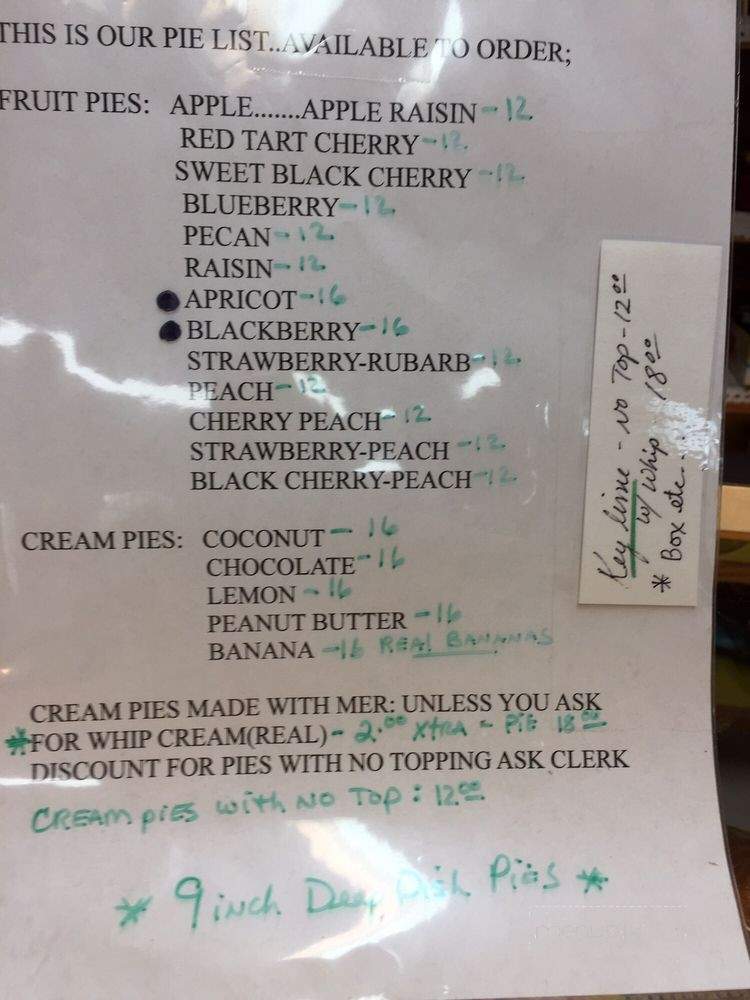 THIS IS OUR PIE LIST..AVAILABLE TO ORDER;
FRUIT PIES: APPLE.......APPLE RAISIN - 12
RED TART CHERRY - 12
SWEET BLACK CHERRY - 12
BLUEBERRY - 12
PECAN - 12
RAISIN - 12
APRICOT - 16
BLACKBERRY - 16
STRAWBERRY-RUBARB - 12
PEACH - 12
CHERRY PEACH - 12
STRAWBERRY-PEACH - 12
BLACK CHERRY-PEACH - 12
CREAM PIES: COCONUT - 16
CHOCOLATE - 16
LEMON - 16
PEANUT BUTTER - 16
BANANA - 16 REAL BANANAS
CREAM PIES MADE WITH MER: UNLESS YOU ASK
*FOR WHIP CREAM(REAL) - 2.00 XTRA - PIE 18 00
DISCOUNT FOR PIES WITH NO TOPPING ASK CLERK
CREAM PIES WITH NO TOP: 12 00
* 9 inch Deep Dish Pies *
Key lime - NO TOP - 12 00
w/ whip 18 00
* Box etc...